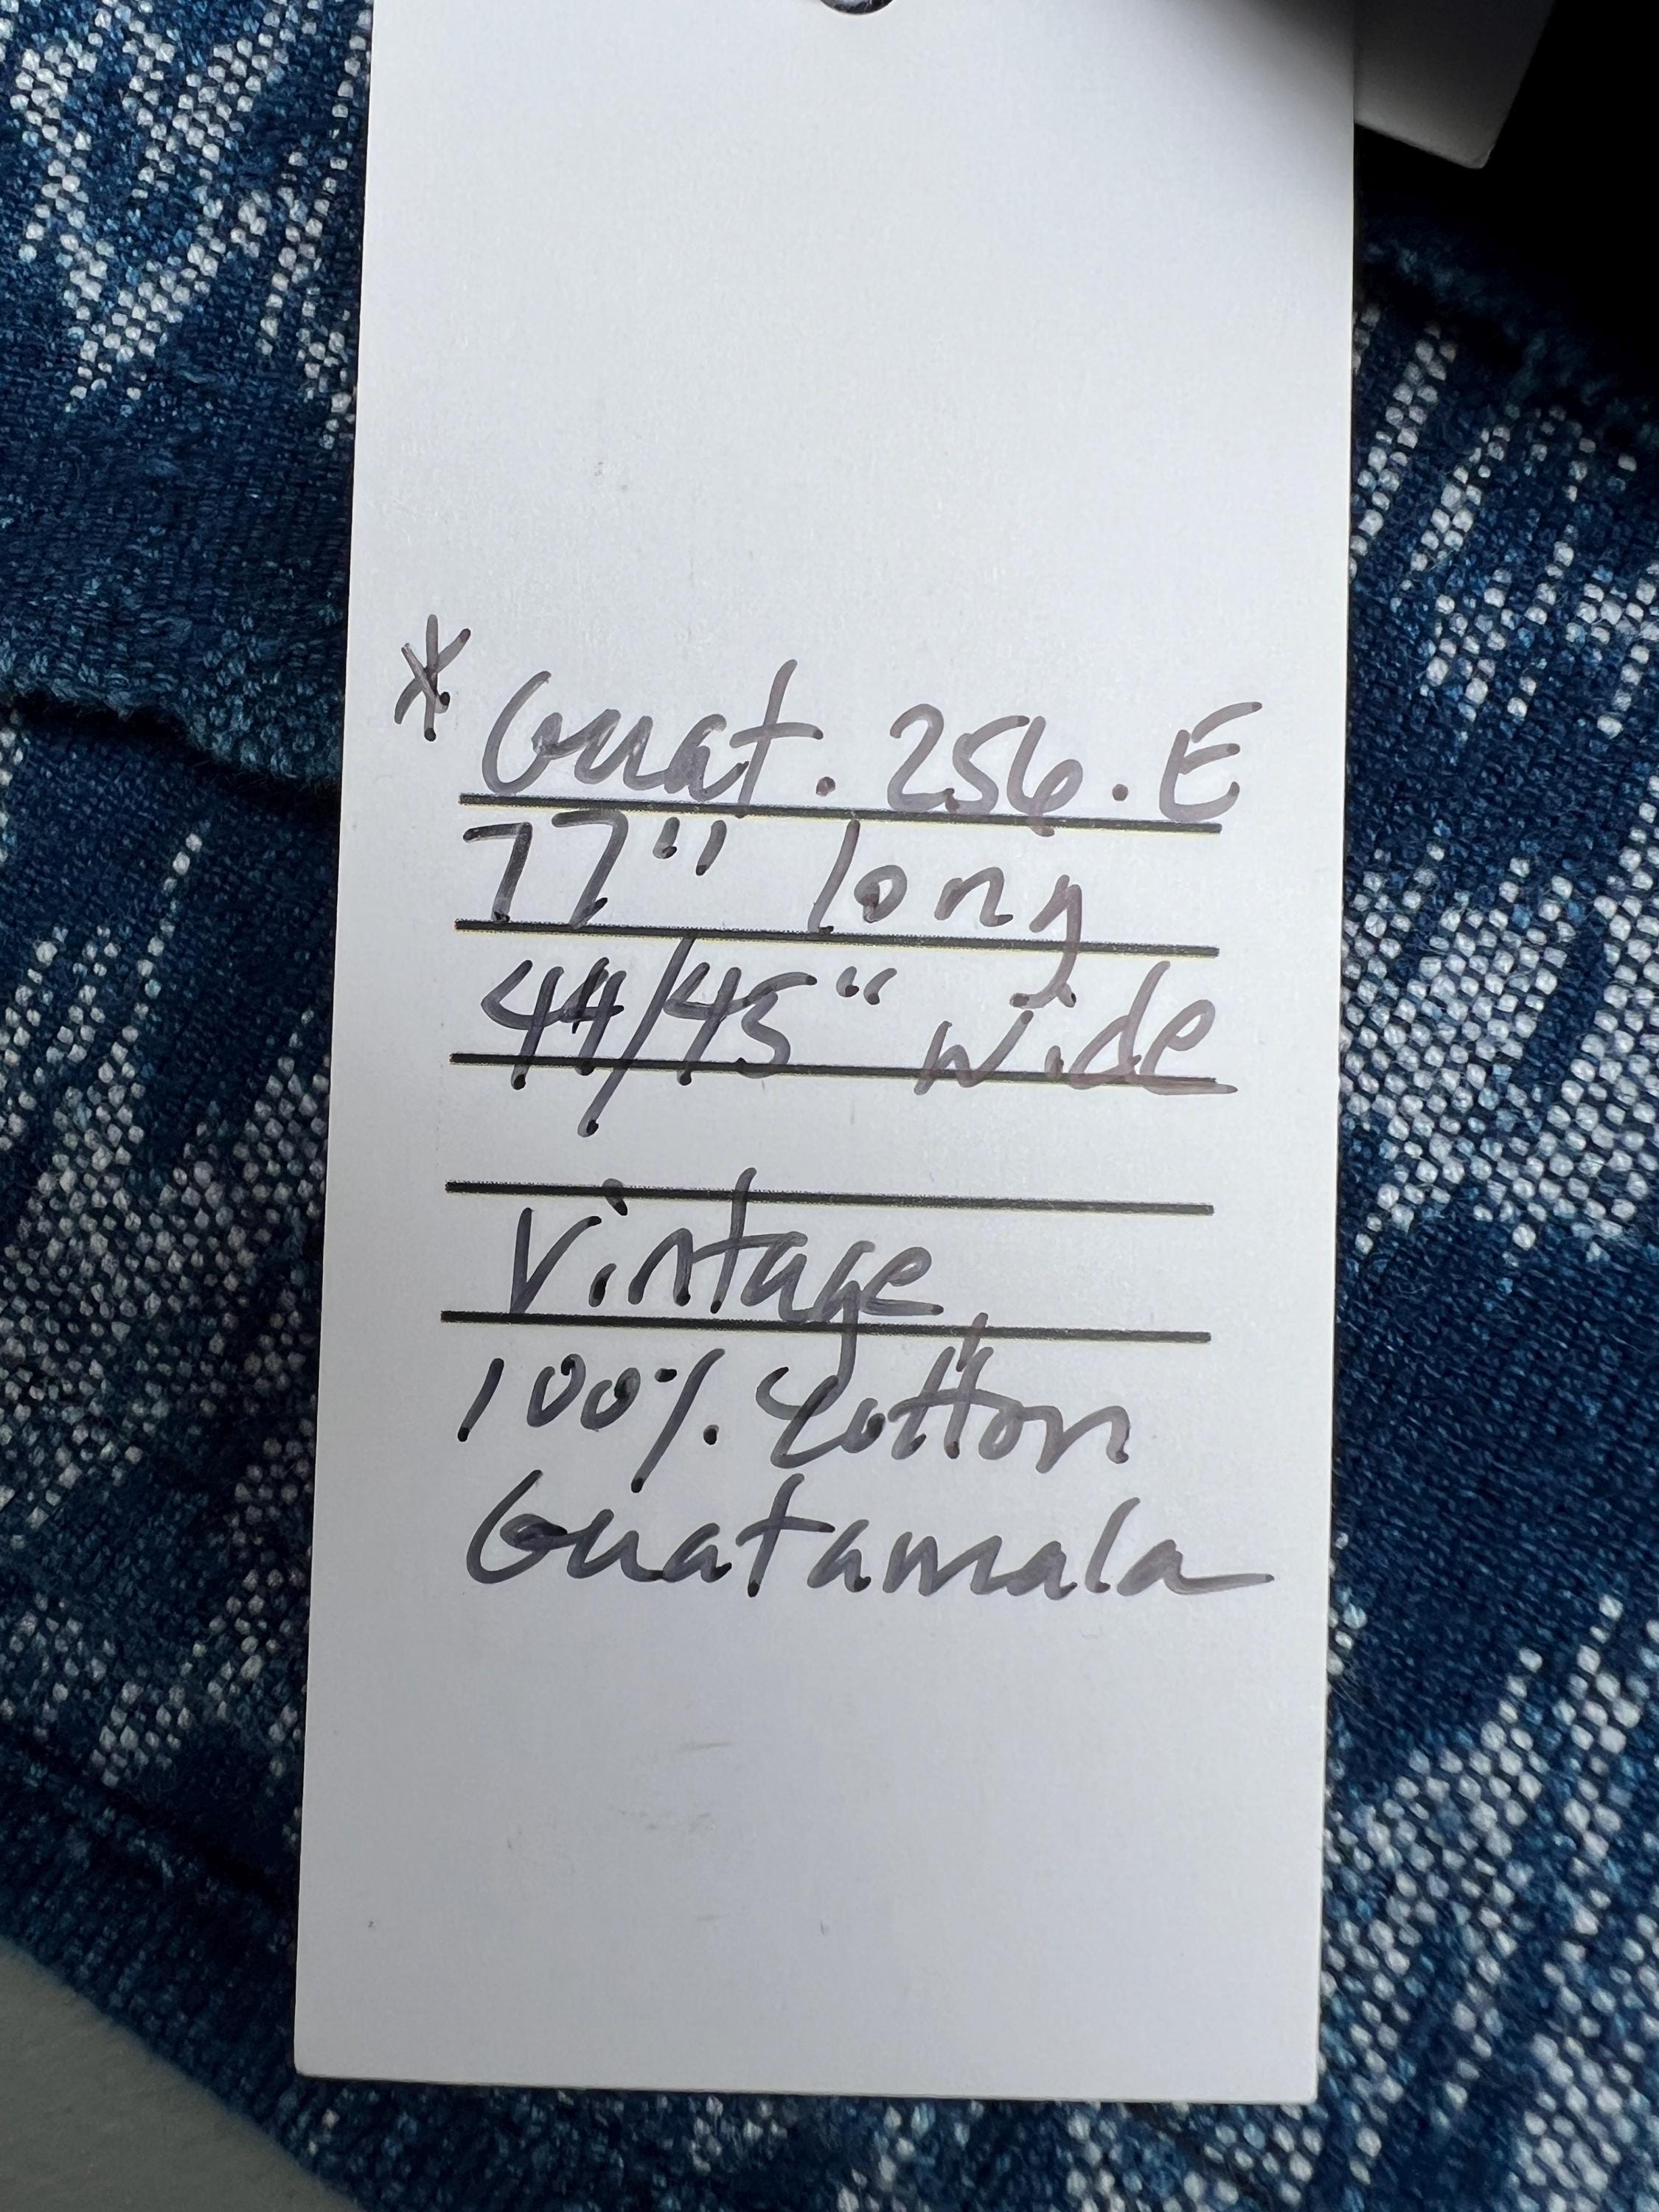 * Guat. 256. E
77" long
44/45" wide
Vintage
100% Cotton
Guatamala